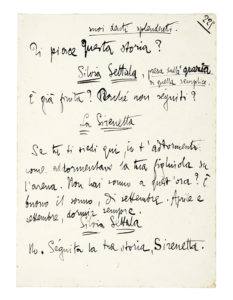 moi denti splendenti.
221
Ti piace questa storia?
Silvia Settala, presa dalla quarata
da quella semplice.
È già finita? Perché non seguiti?
La Sirenetta
Se tu ti siedi qui, io t'addormento
come addormentavo la tua figliuola su
l'arena. Non hai sonno a quest'ora? È
buono il sonno, di settembre. Aprile e
settembre, dormir sempre.
Silvia Settala
No. Séguita la tua storia, Sirenetta.